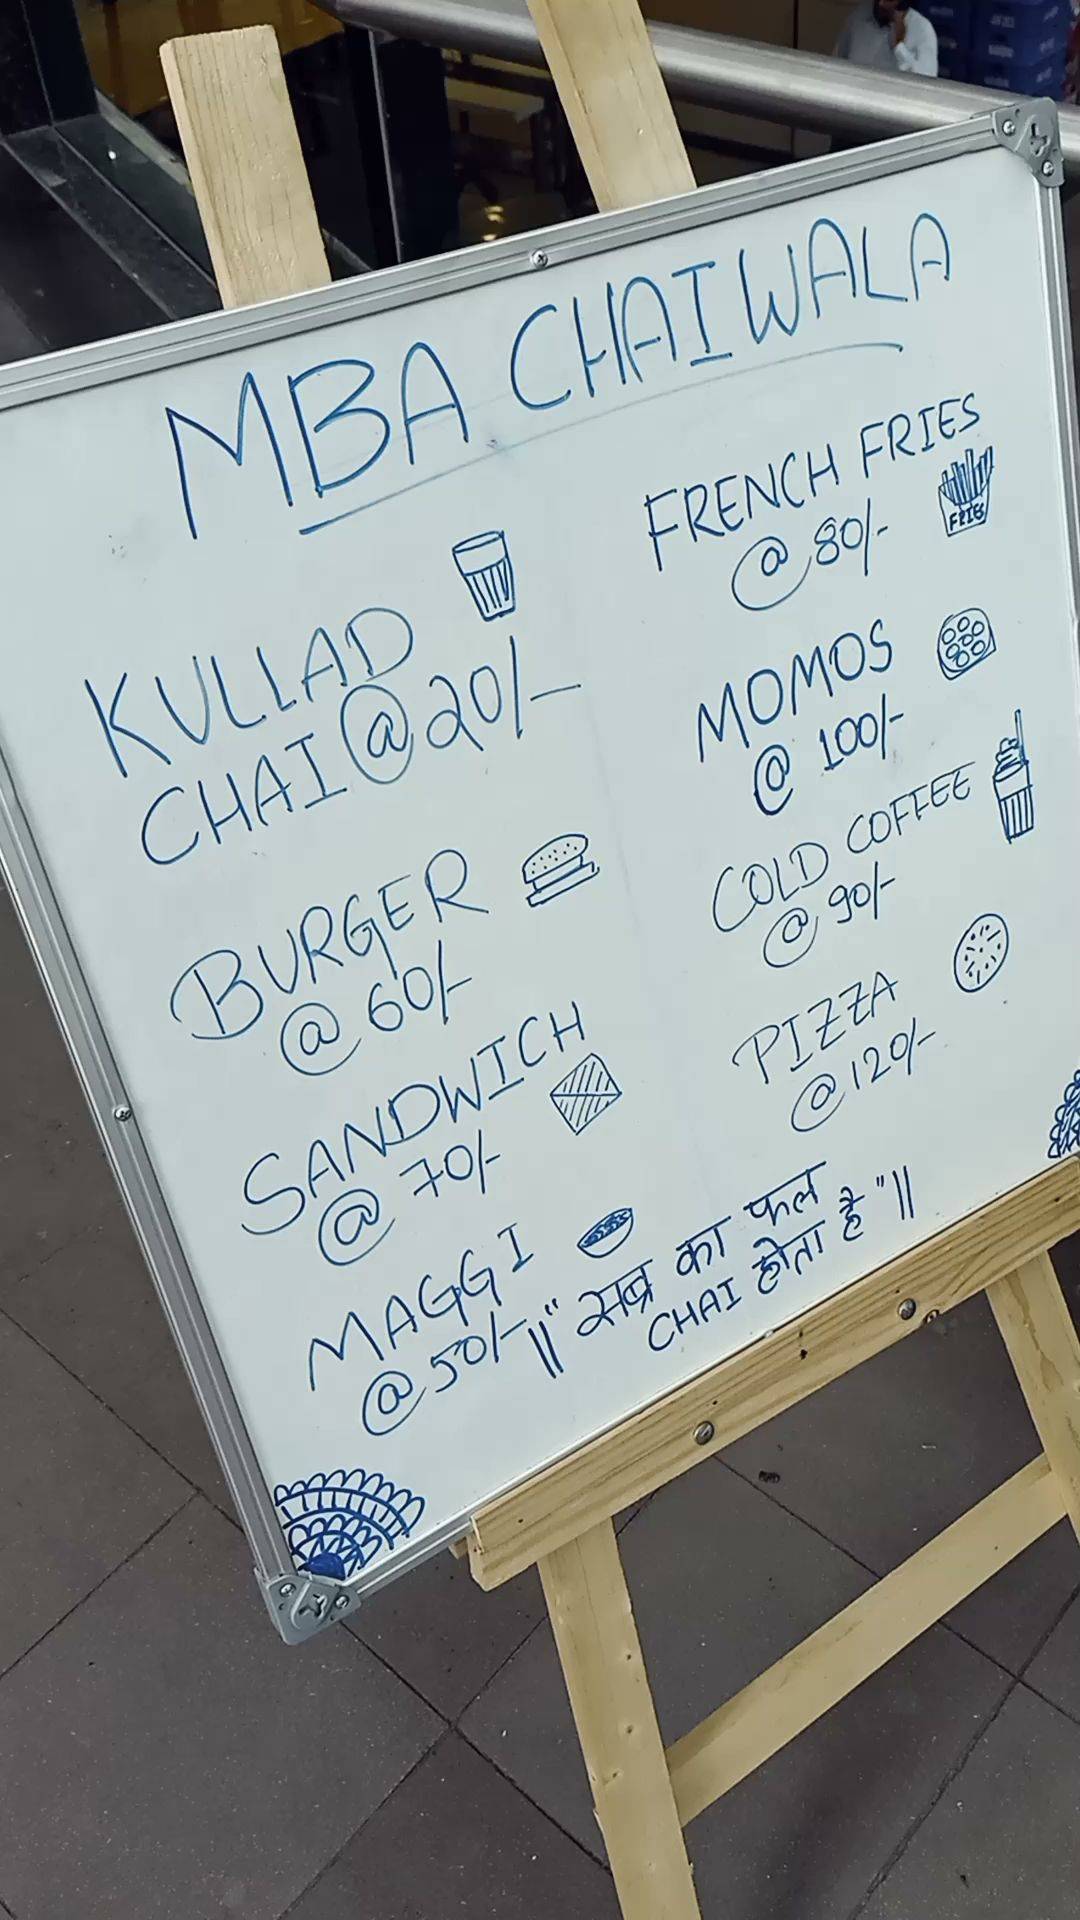 MBA CHAIWALA
KULLAD
CHAI @ 20/-
BURGER
@ 60/-
SANDWICH
@ 70/-
MAGGI
@ 50/-
FRENCH FRIES
@ 80/-
FRIES
MOMOS
@ 100/-
COLD COFFEE
@ 90/-
PIZZA
@ 120/-
||" सब्र का फल
CHAI होता है "||